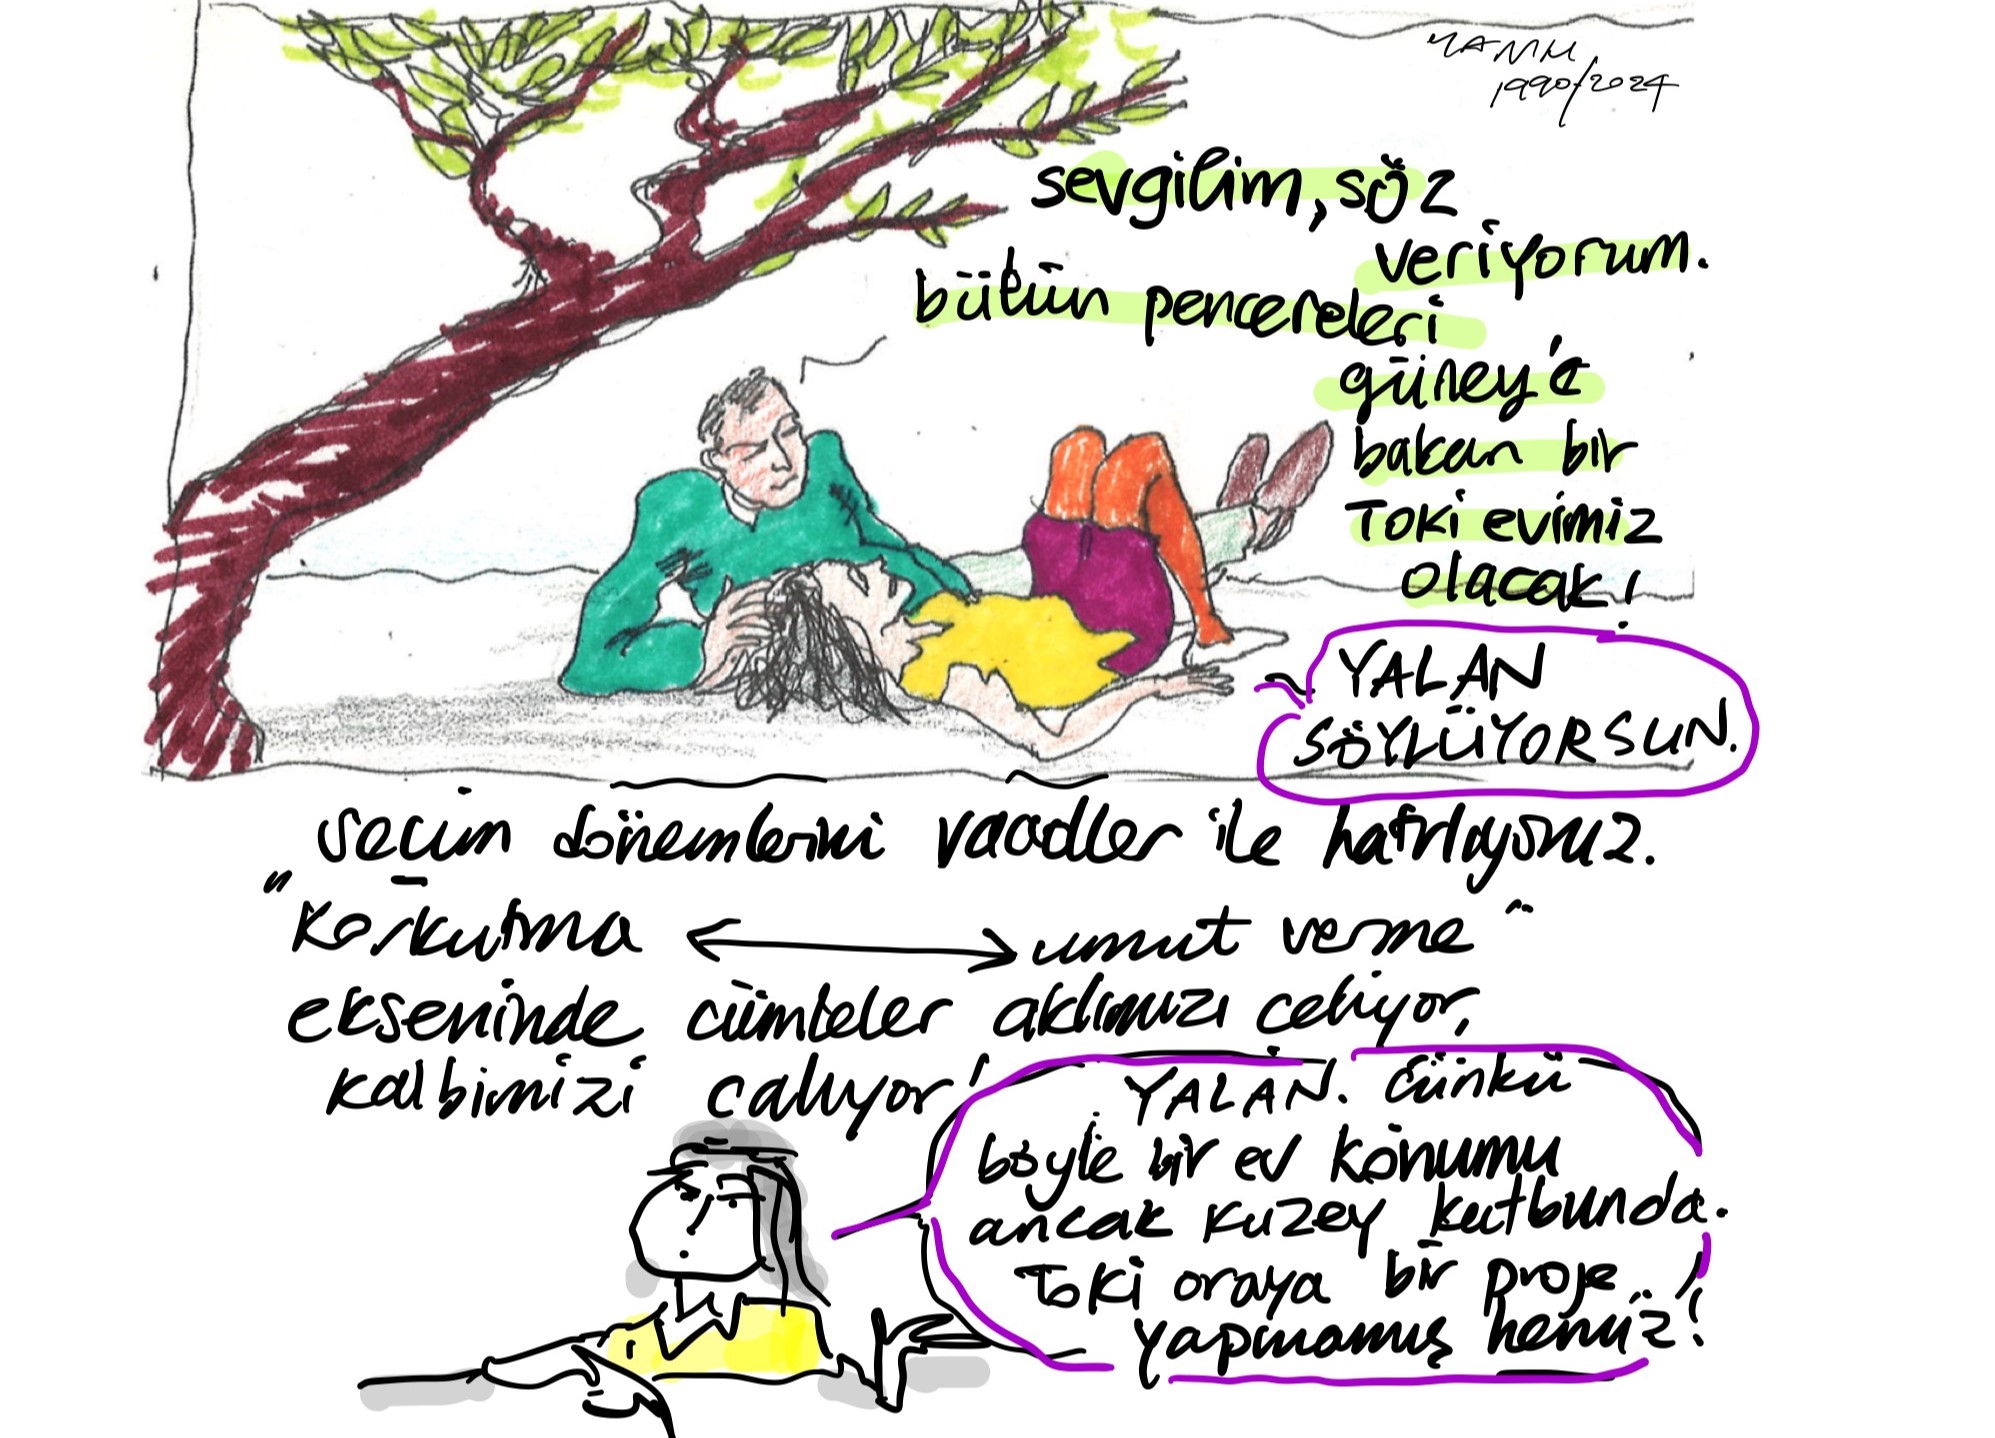 1990/2024
sevgilim, söz
veriyorum.
bütün pencereleri
güney'e
bakan bir
TOKİ evimiz
olacak!
YALAN
SÖYLÜYORSUN.
seçim dönemlerini vaadler ile hatırlıyoruz.
"Korkutma ↔ umut verme"
ekseninde cümleler aklımızı çeliyor,
kalbimizi çalıyor!
YALAN. Çünkü
böyle bir ev konumu
ancak kuzey kutbunda.
TOKİ oraya bir proje
yapmamış henüz!